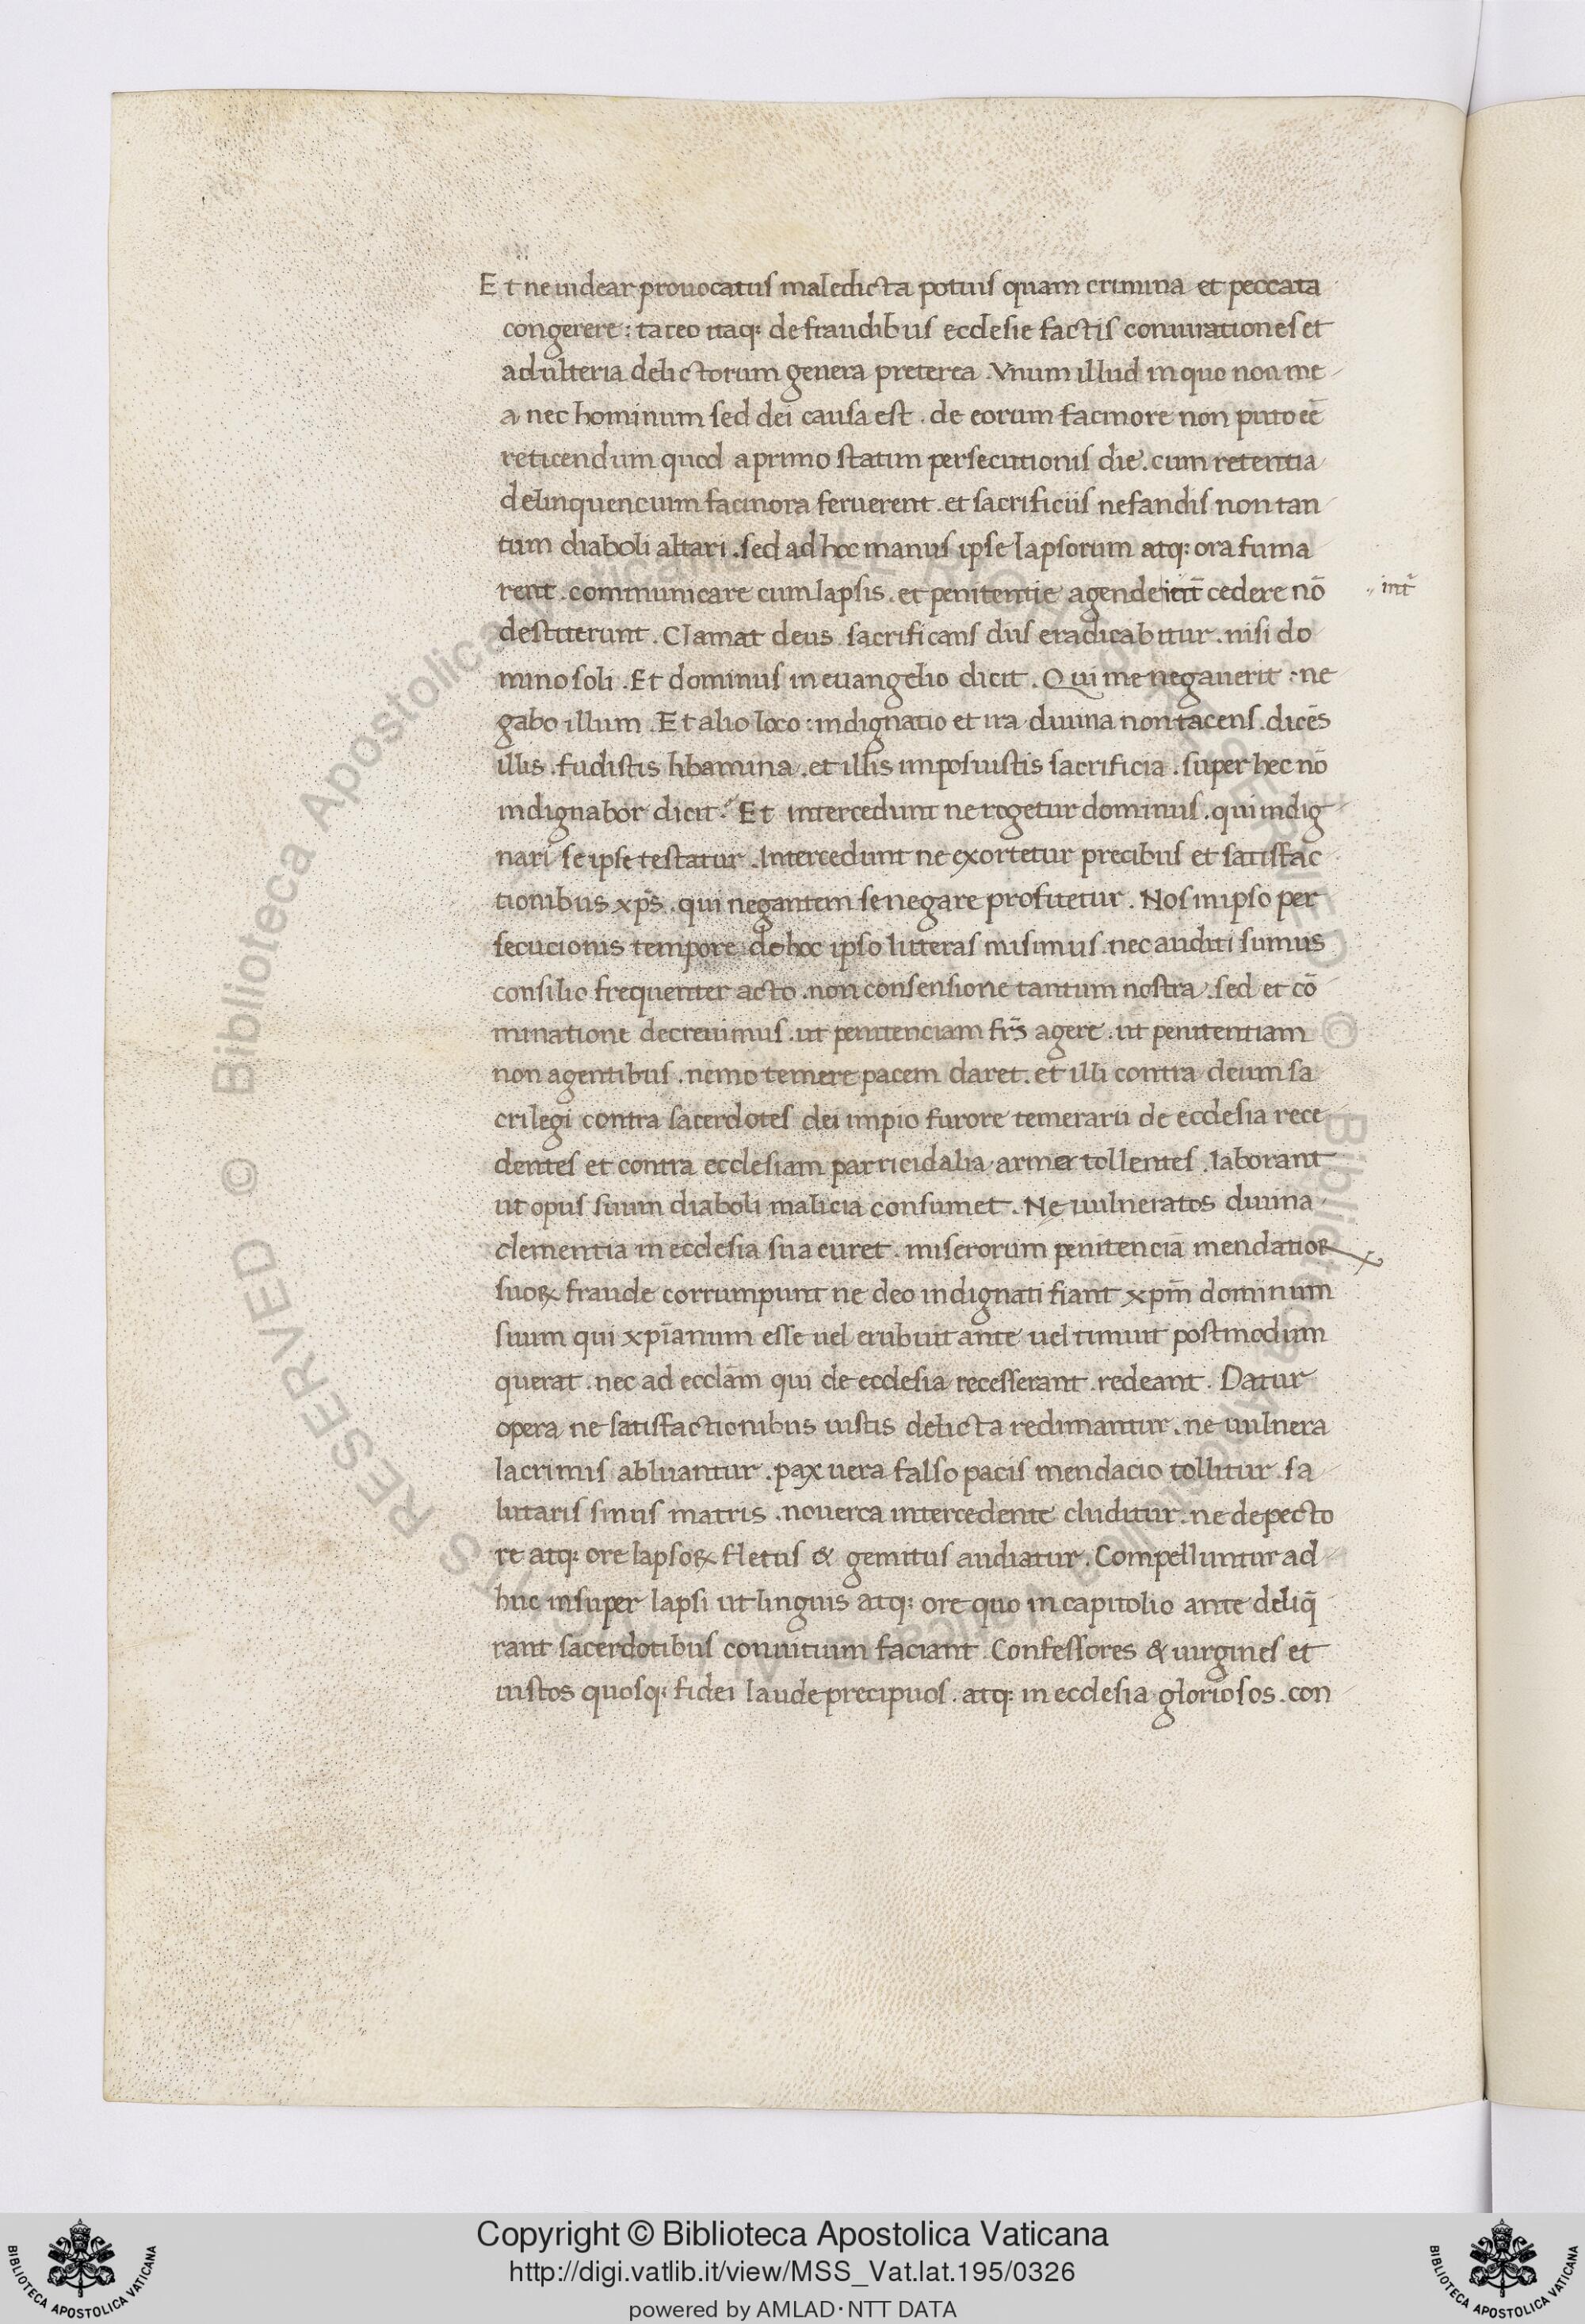 Et ne uidear prouocatus maledicta potius quam crimina et peccata
congerere : taceo itaq; de fraudibus ecclesie factis coniurationes et
adulteria delictorum genera preterea . Vnum illud in quo non me
a nec hominum sed dei causa est . de eorum facinore non puto eē
reticendum quod a primo statim persecutionis die . cum retentia
delinquencium facinora feruerent . et sacrificiis nefandis non tan
tum diaboli altari . sed ad hoc manus ipse lapsorum atq; ora fuma
rent . communicare cum lapsis . et penitentie agende cedere nō
int̄
destiterunt . Clamat deus sacrificans diis eradicabitur . nisi do
mino soli . Et dominus in euangelio dicit . Qui me negauerit : ne
gabo illum . Et alio loco : indignatio et ira diuina non tacens . dicēs
illis . fudistis libamina . et illis imposuistis sacrificia . super hec nō
indignabor dicit ? Et intercedunt ne rogetur dominus . qui indig
nari se ipse testatur . Intercedunt ne exortetur precibus et satisfac
tionibus xp̄s . qui negantem se negare profitetur . Nos in ipso per
secucionis tempore de hoc ipso litteras misimus . nec auditi sumus
consilio frequenter acto . non consensione tantum nostra . sed et cō
minatione decreuimus . ut penitenciam fr̄s agere . ut penitentiam
non agentibus . nemo temere pacem daret . et illi contra deum sa
crilegi contra sacerdotes dei impio furore temerarii de ecclesia rece
dentes et contra ecclesiam parricidalia arma tollentes . laborant
ut opus suum diaboli malicia consumet . Ne uulneratos diuina
clementia in ecclesia sua curet . miserorum penitenciā mendatioꝝ
suoꝝ fraude corrumpunt ne deo indignati fiant xp̄m dominum
suum qui xp̄ianum esse uel erubuit ante uel timuit postmodum
querat . nec ad ecclām qui de ecclesia recesserant . redeant . Datur
opera ne satisfactionibus iustis delicta redimantur . ne uulnera
lacrimis abluantur . pax uera falso pacis mendacio tollitur . sa
lutaris sinus matris . nouerca intercedente cluditur . ne de pecto
re atq; ore lapsoꝝ fletus & gemitus audiatur . Compelluntur ad
huc insuper lapsi ut linguis atq; ore quo in capitolio ante deliq̄
rant sacerdotibus conuitium faciant . Confessores & uirgines et
iustos quosq; fidei laude precipuos . atq; in ecclesia gloriosos . con
© Biblioteca Apostolica Vaticana
RESERVED
Copyright © Biblioteca Apostolica Vaticana
http://digi.vatlib.it/view/MSS_Vat.lat.195/0326
powered by AMLAD · NTT DATA
BIBLIOTECA APOSTOLICA VATICANA
BIBLIOTECA APOSTOLICA VATICANA